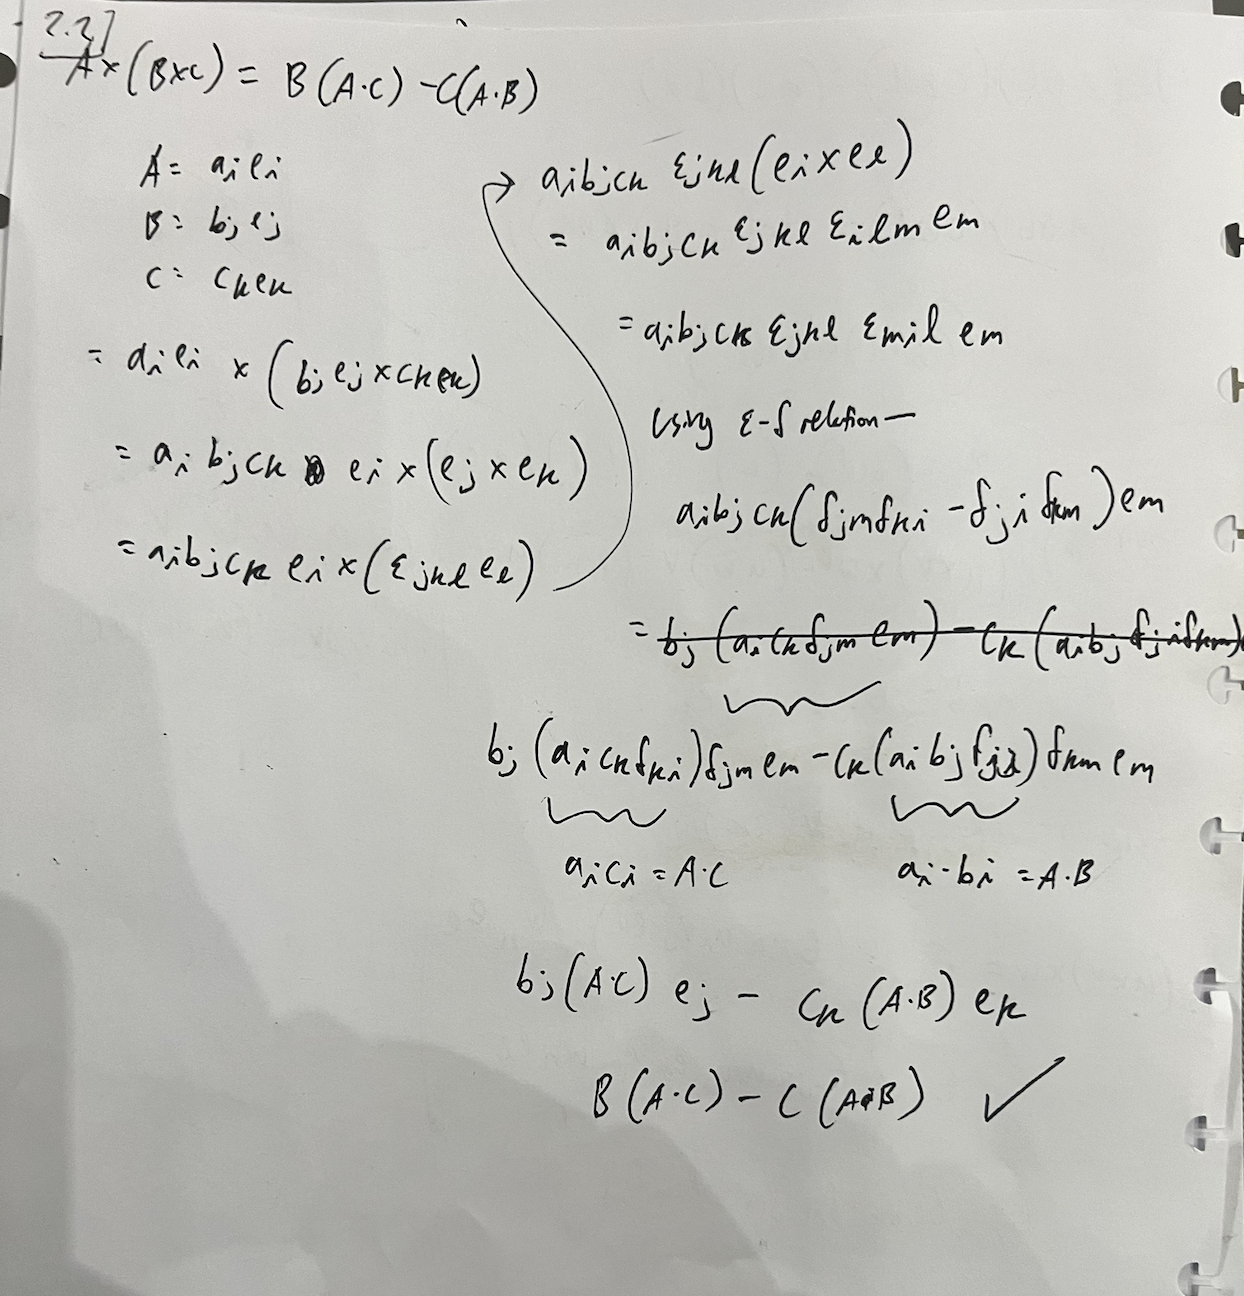 2.2]
A×(B×C) = B(A·C) - C(A·B)
A = aᵢeᵢ
B = bⱼeⱼ
C = cₖeₖ
= aᵢeᵢ × (bⱼeⱼ × cₖeₖ)
= aᵢbⱼcₖ eᵢ × (eⱼ × eₖ)
= aᵢbⱼcₖ eᵢ × (εⱼₖₗ eₗ)
→ aᵢbⱼcₖ εⱼₖₗ (eᵢ × eₗ)
= aᵢbⱼcₖ εⱼₖₗ εᵢₗₘ eₘ
= aᵢbⱼcₖ εⱼₖₗ εₘᵢₗ eₘ
Using ε-δ relation—
aᵢbⱼcₖ(δⱼₘδₖᵢ - δⱼᵢδₖₘ)eₘ
= bⱼ(aᵢcₖδⱼₘ eₘ) - cₖ(aᵢbⱼ δⱼᵢδₖₘ)
bⱼ(aᵢcₖδₖᵢ)δⱼₘeₘ - cₖ(aᵢbⱼδⱼᵢ)δₖₘeₘ
aᵢcᵢ = A·C aᵢ·bᵢ = A·B
bⱼ(A·C) eⱼ - cₖ(A·B) eₖ
B(A·C) - C(A·B) ✓